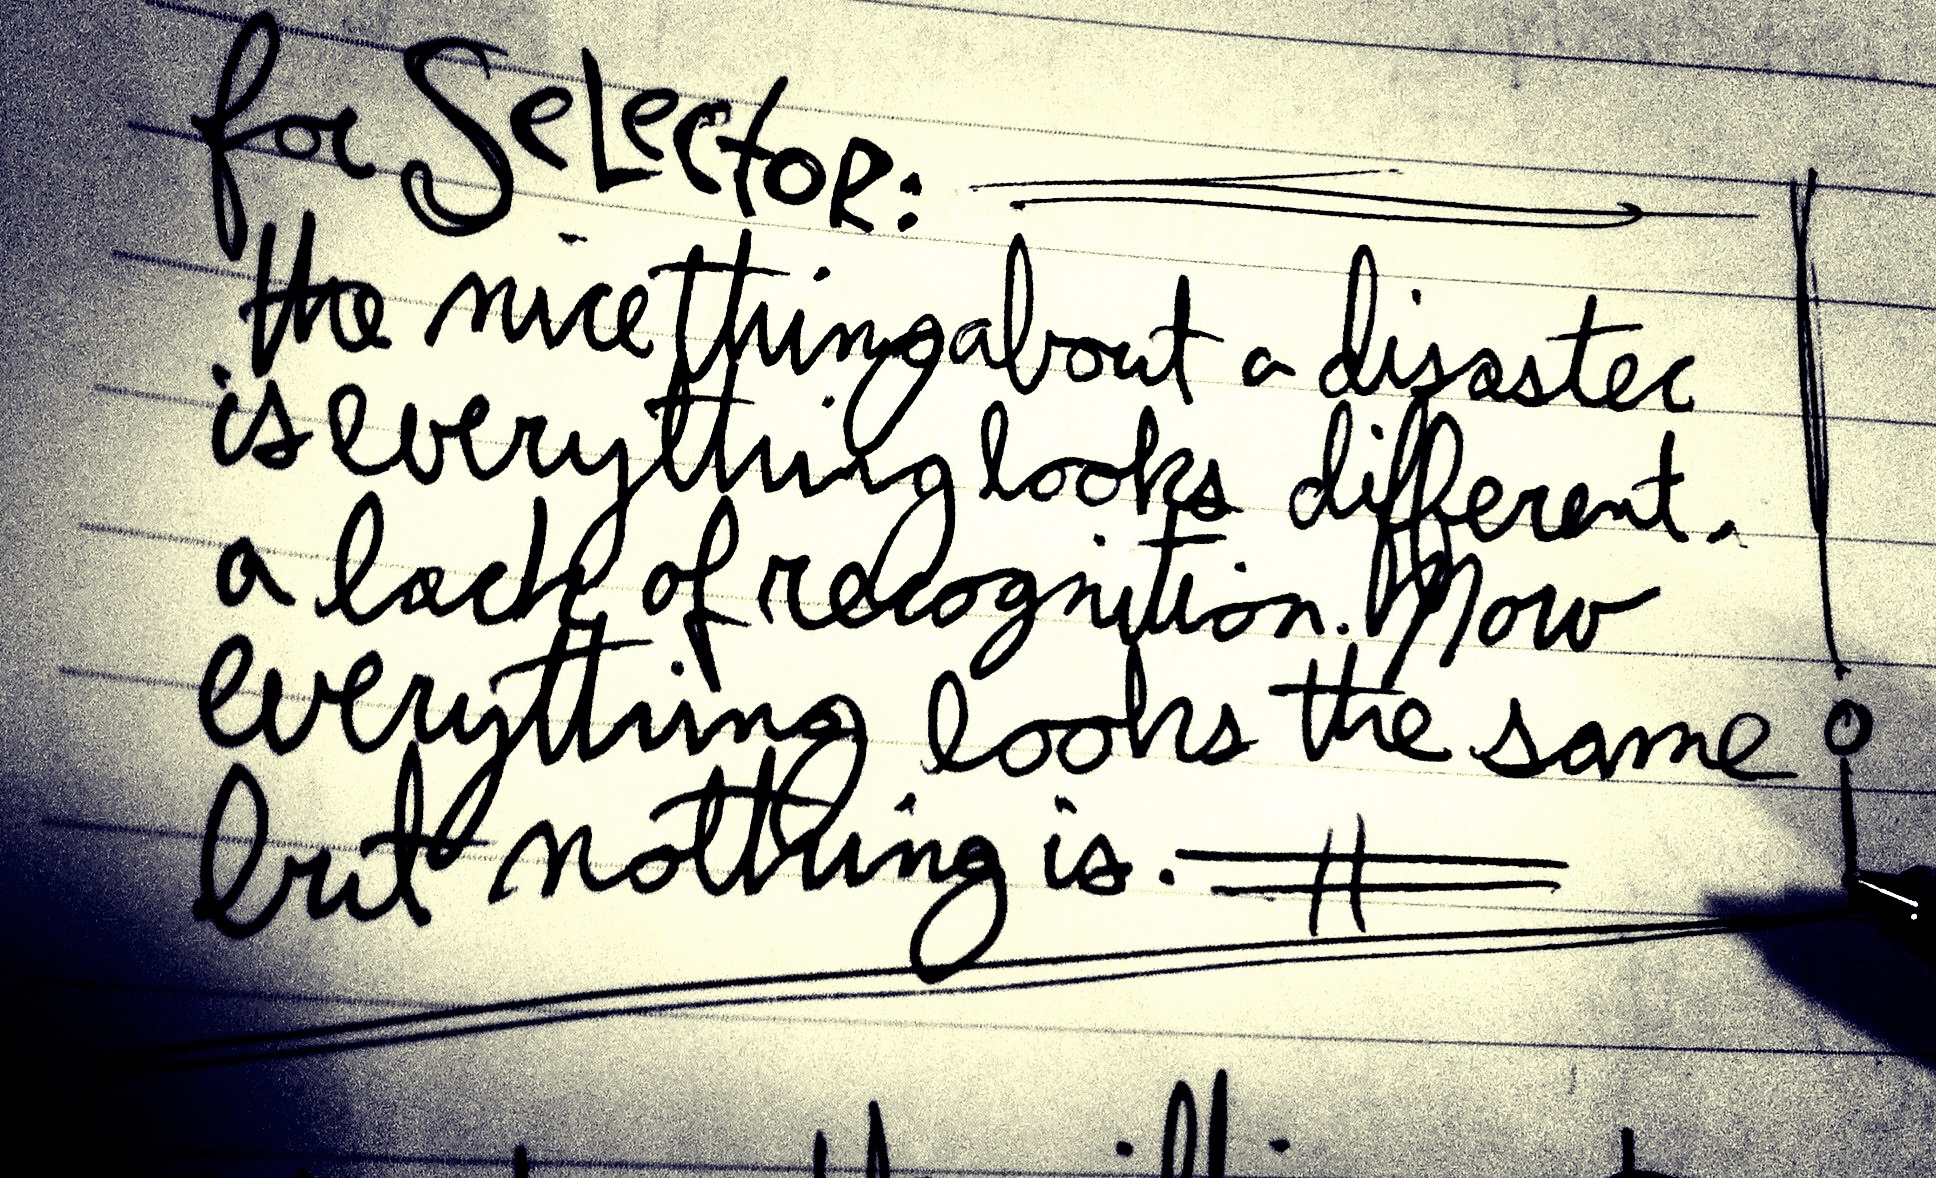 for SeLectoR:
the nice thing about a disaster
is everything looks different.
a lack of recognition. Now
everything looks the same
but nothing is.